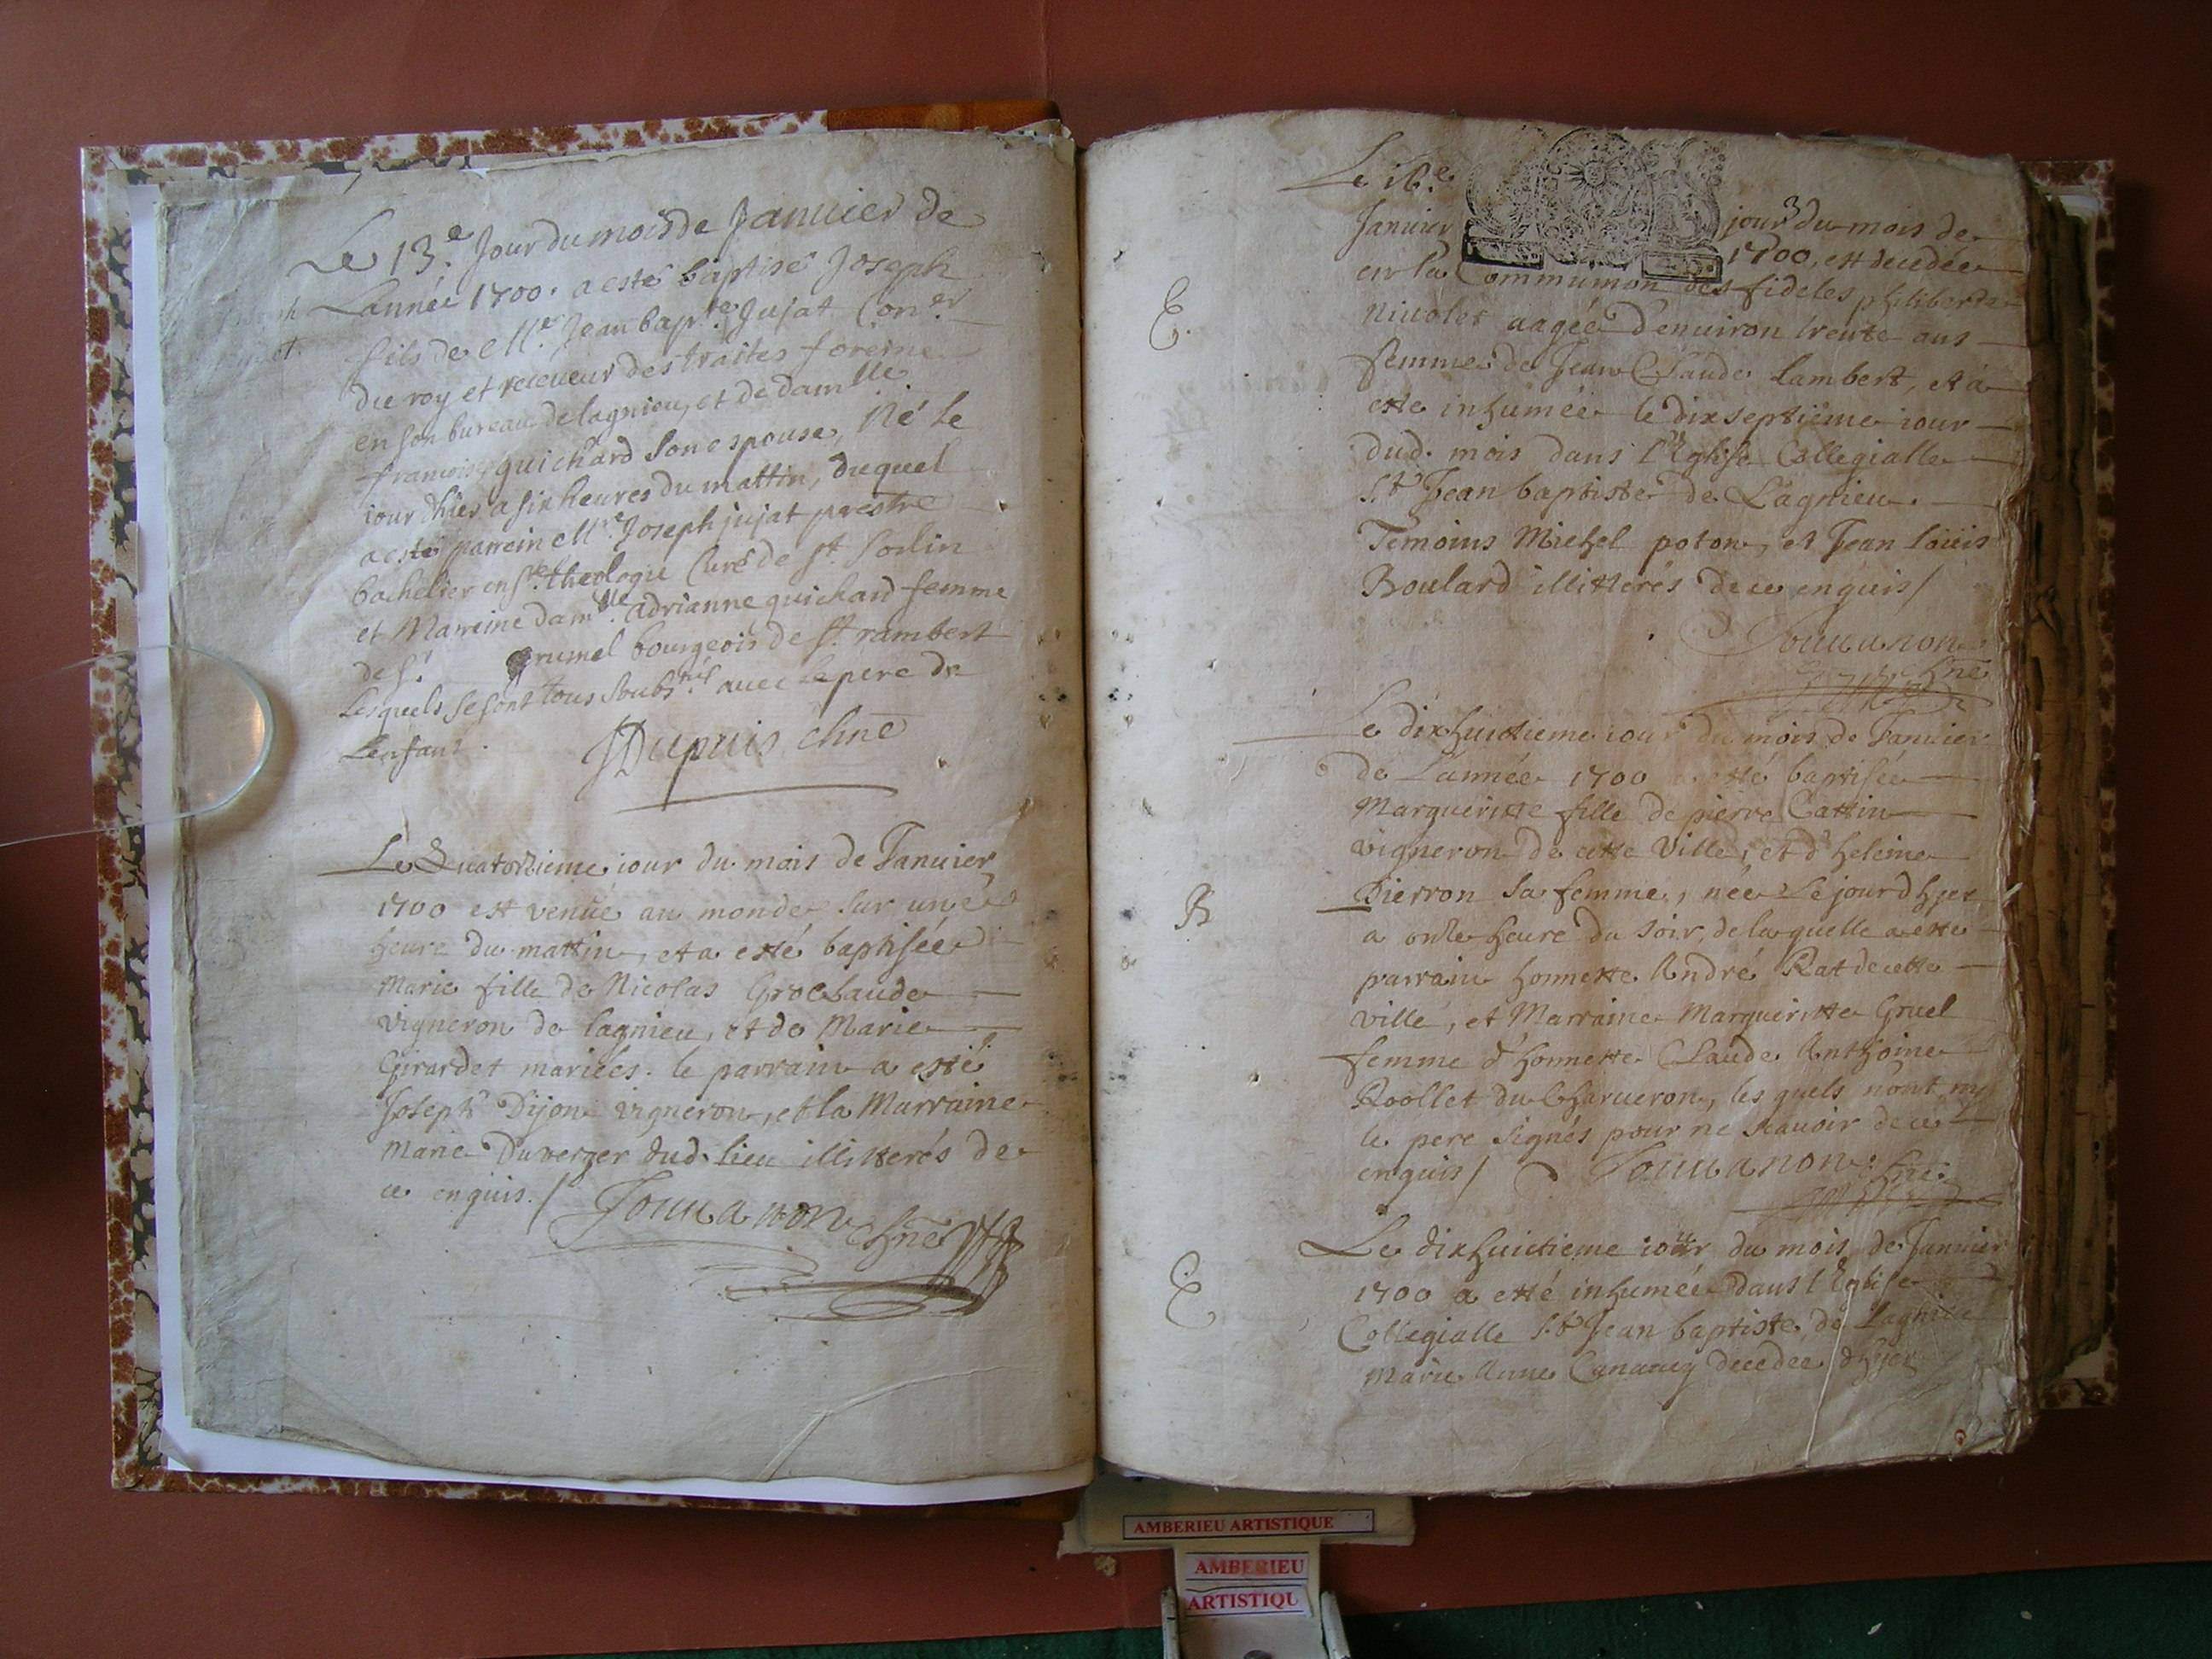 Le 13.e Jour du mois de Januier de
Lannée 1700. a esté baptisé Joseph
fils de Mre. Jean bapte. Jujat Con.er
du roy et receueur des traites foreine
en son bureau de lagnieu, et de damlle
francoise guichard son espouse, Né le
iour dhier a six heures du mattin, duquel
a esté parrein Mre. Joseph jujat prestre
bachelier en ste. theologie Curé de st. Sorlin
et Marreine damlle. adrianne guichard femme
de Sr. grumel bourgeois de st. rambert
Lesquels se sont tous soubsnés. auec le pere de
Lenfant.
JDupuis chne
Le Quatorzieme iour du mois de Januier
1700 est venüe au monde sur une
heure du mattin, et a esté baptisée
Marie fille de Nicolas Groclaude
vigneron de lagnieu, et de Marie
Girardet mariées. le parrain a esté
Joseph Dijon vigneron, et la Marraine
Marie Duverger dud. lieu illitterés de
ce enquis./ Jouuanon chne
Le 16.e jour du mois de
Januier 1700, est decedée
en la Communion des fideles philiberte
Niuolet aagée d'enuiron trente ans
femme de Jean Claude Lambert, et a
esté inhumée le dixseptiéme iour
dud. mois dans l'Eglise Collegialle
St Jean baptiste de Lagnieu.
Témoins Michel poton, et Jean Loüis
Boulard illitterés de ce enquis/
Jouuanon
chne
E.
Le dixhuictieme iour du mois de Januier
de L'année 1700 a esté baptisée
Margueritte fille de pierre Cattin
vigneron de cette Ville, et d'heleine
Pierron sa femme, née Le jour d'hyer
a onze heure du soir, de laquelle a esté
parrain honneste André Rat de cette
ville, et Marraine Margueritte Gruel
femme d'honneste Claude Anthoine
Roollet du Charueron, les quels n'ont ny
le pere signés pour ne scauoir de ce
enquis/ Jouuanon chne
B
Le dixhuictieme iour du mois de Januier
1700 a esté inhumée dans l'Eglise
Collegialle St Jean baptiste de Lagnieu
Marie Anne decedée d'hyer
E
AMBERIEU ARTISTIQUE
AMBERIEU
ARTISTIQU